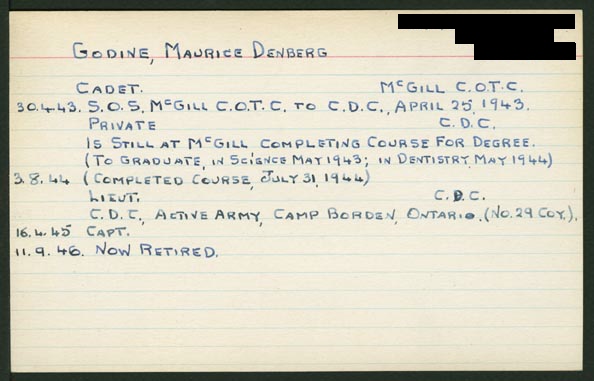 GODINE, MAURICE DENBERG
CADET. McGILL C.O.T.C.
30.4.43. S.O.S. McGILL C.O.T.C. TO C.D.C., APRIL 25, 1943.
PRIVATE C.D.C.
IS STILL AT McGILL COMPLETING COURSE FOR DEGREE.
(TO GRADUATE, IN SCIENCE MAY 1943; IN DENTISTRY MAY 1944)
3.8.44 (COMPLETED COURSE, JULY 31, 1944)
LIEUT. C.D.C.
C.D.C., ACTIVE ARMY, CAMP BORDEN, ONTARIO. (No. 29 COY.).
16.4.45 CAPT.
11.9.46. NOW RETIRED.